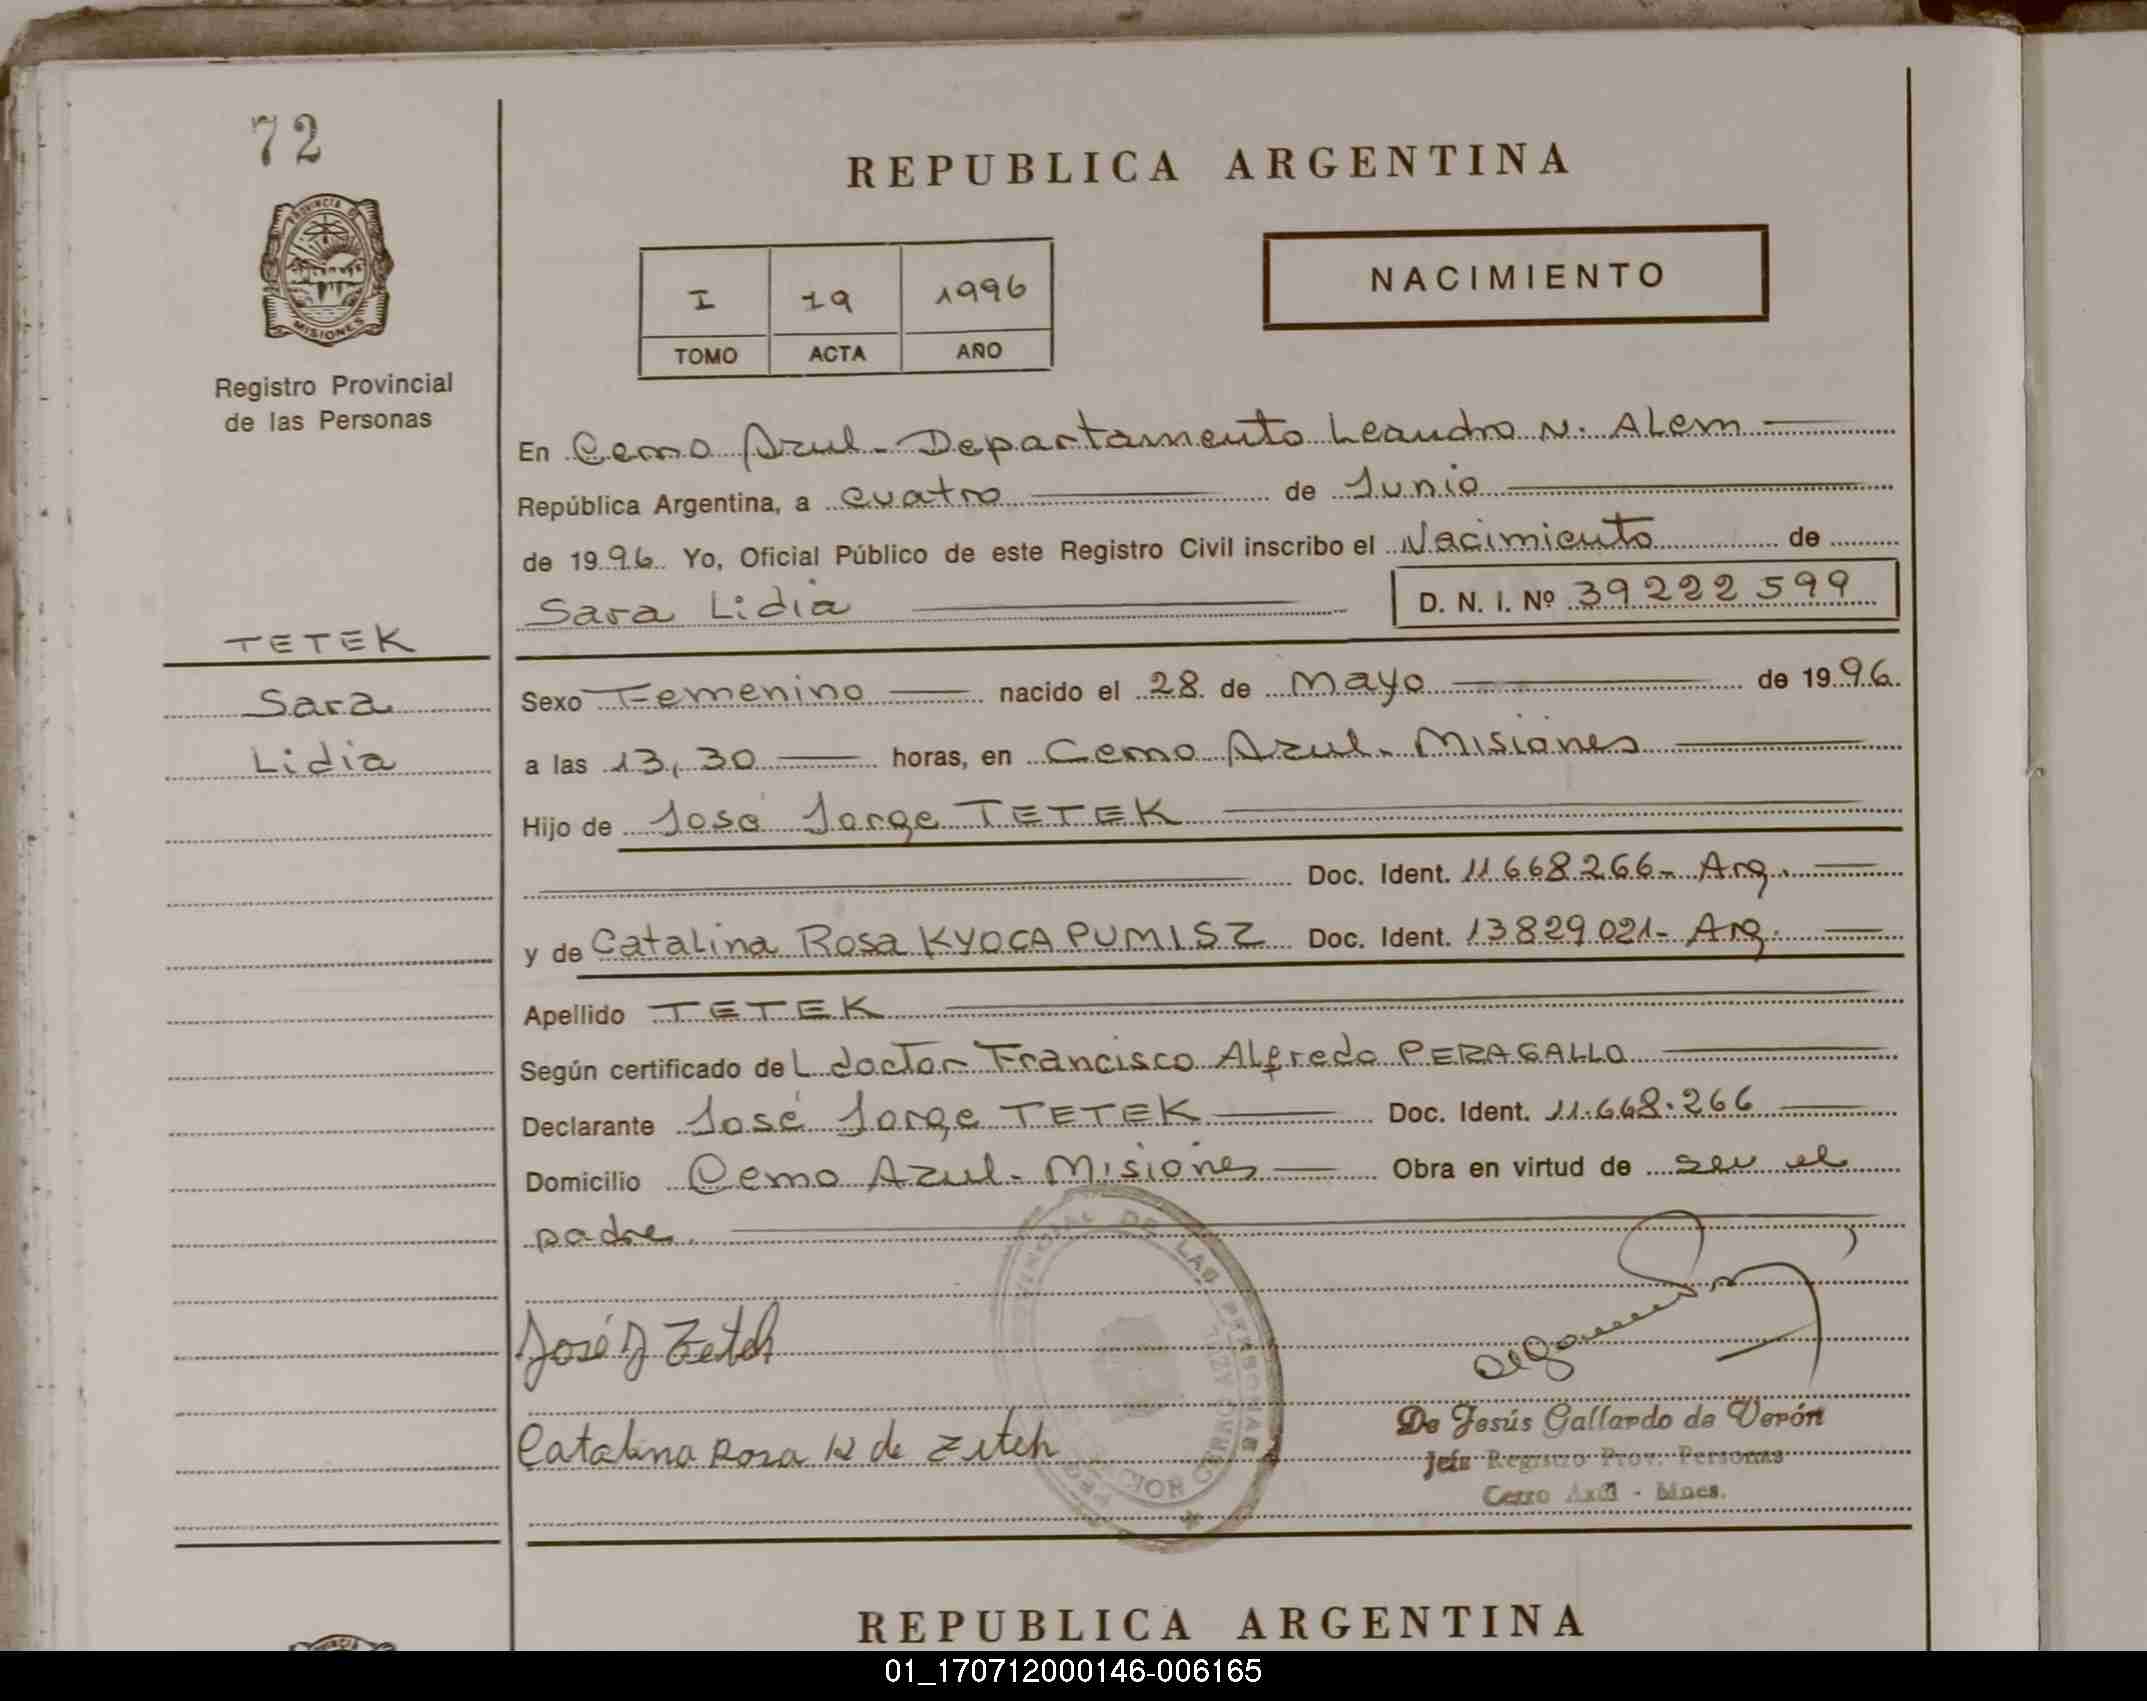 72
REPUBLICA ARGENTINA
PROVINCIA DE
MISIONES
Registro Provincial
de las Personas
I 19 1996
TOMO ACTA AÑO
NACIMIENTO
En Cerro Azul - Departamento Leandro N. Alem
República Argentina, a cuatro de Junio
de 1996 Yo, Oficial Público de este Registro Civil inscribo el Nacimiento de
Sara Lidia D. N. I. Nº 39222599
TETEK
Sara
Lidia
Sexo Femenino nacido el 28 de Mayo de 1996.
a las 13,30 horas, en Cerro Azul - Misiones
Hijo de José Jorge TETEK
Doc. Ident. 11668266- Arg.
y de Catalina Rosa KYOCA PUMISZ Doc. Ident. 13829021- Arg.
Apellido TETEK
Según certificado del doctor Francisco Alfredo PERAGALLO
Declarante José Jorge TETEK Doc. Ident. 11.668.266
Domicilio Cerro Azul - Misiones Obra en virtud de ser el
padre.
José J
Catalina Rosa K de
De Jesús Gallardo de Verón
Jefa Registro Prov. Personas
Cerro Azul - Mnes.
REPUBLICA ARGENTINA
01_170712000146-006165